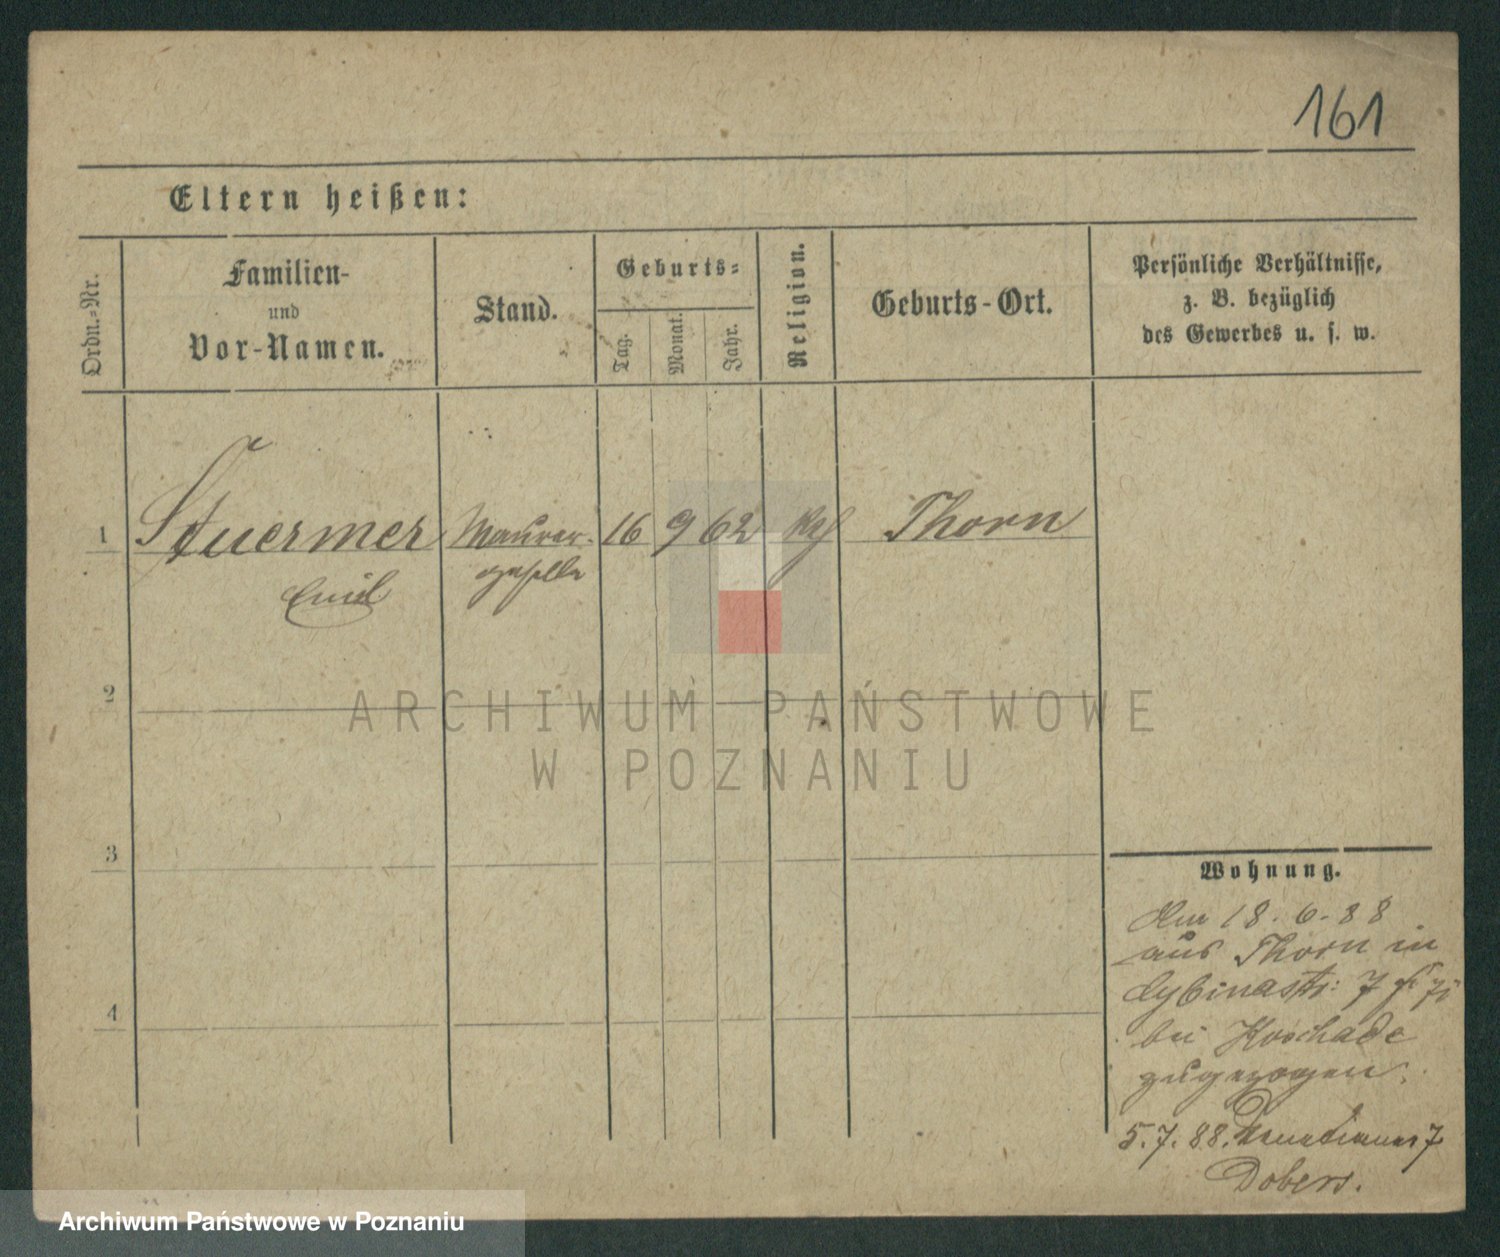 161
Eltern heißen:
Ordn.=Nr.
Familien-
und
Vor-Namen.
Stand.
Geburts=
Tag.
Monat.
Jahr.
Religion.
Geburts-Ort.
Persönliche Verhältnisse,
z. B. bezüglich
des Gewerbes u. s. w.
1 Stuermer Maurer- 16 9 62 Thorn
Emil geselle
2
3
4
Wohnung.
Am 18.6.88
aus Thorn in
Cybinastr: 7
bei Koschade
zugezogen.
5.7.88. Venetianer 7
Dobers.
ARCHIWUM PAŃSTWOWE
W POZNANIU
Archiwum Państwowe w Poznaniu